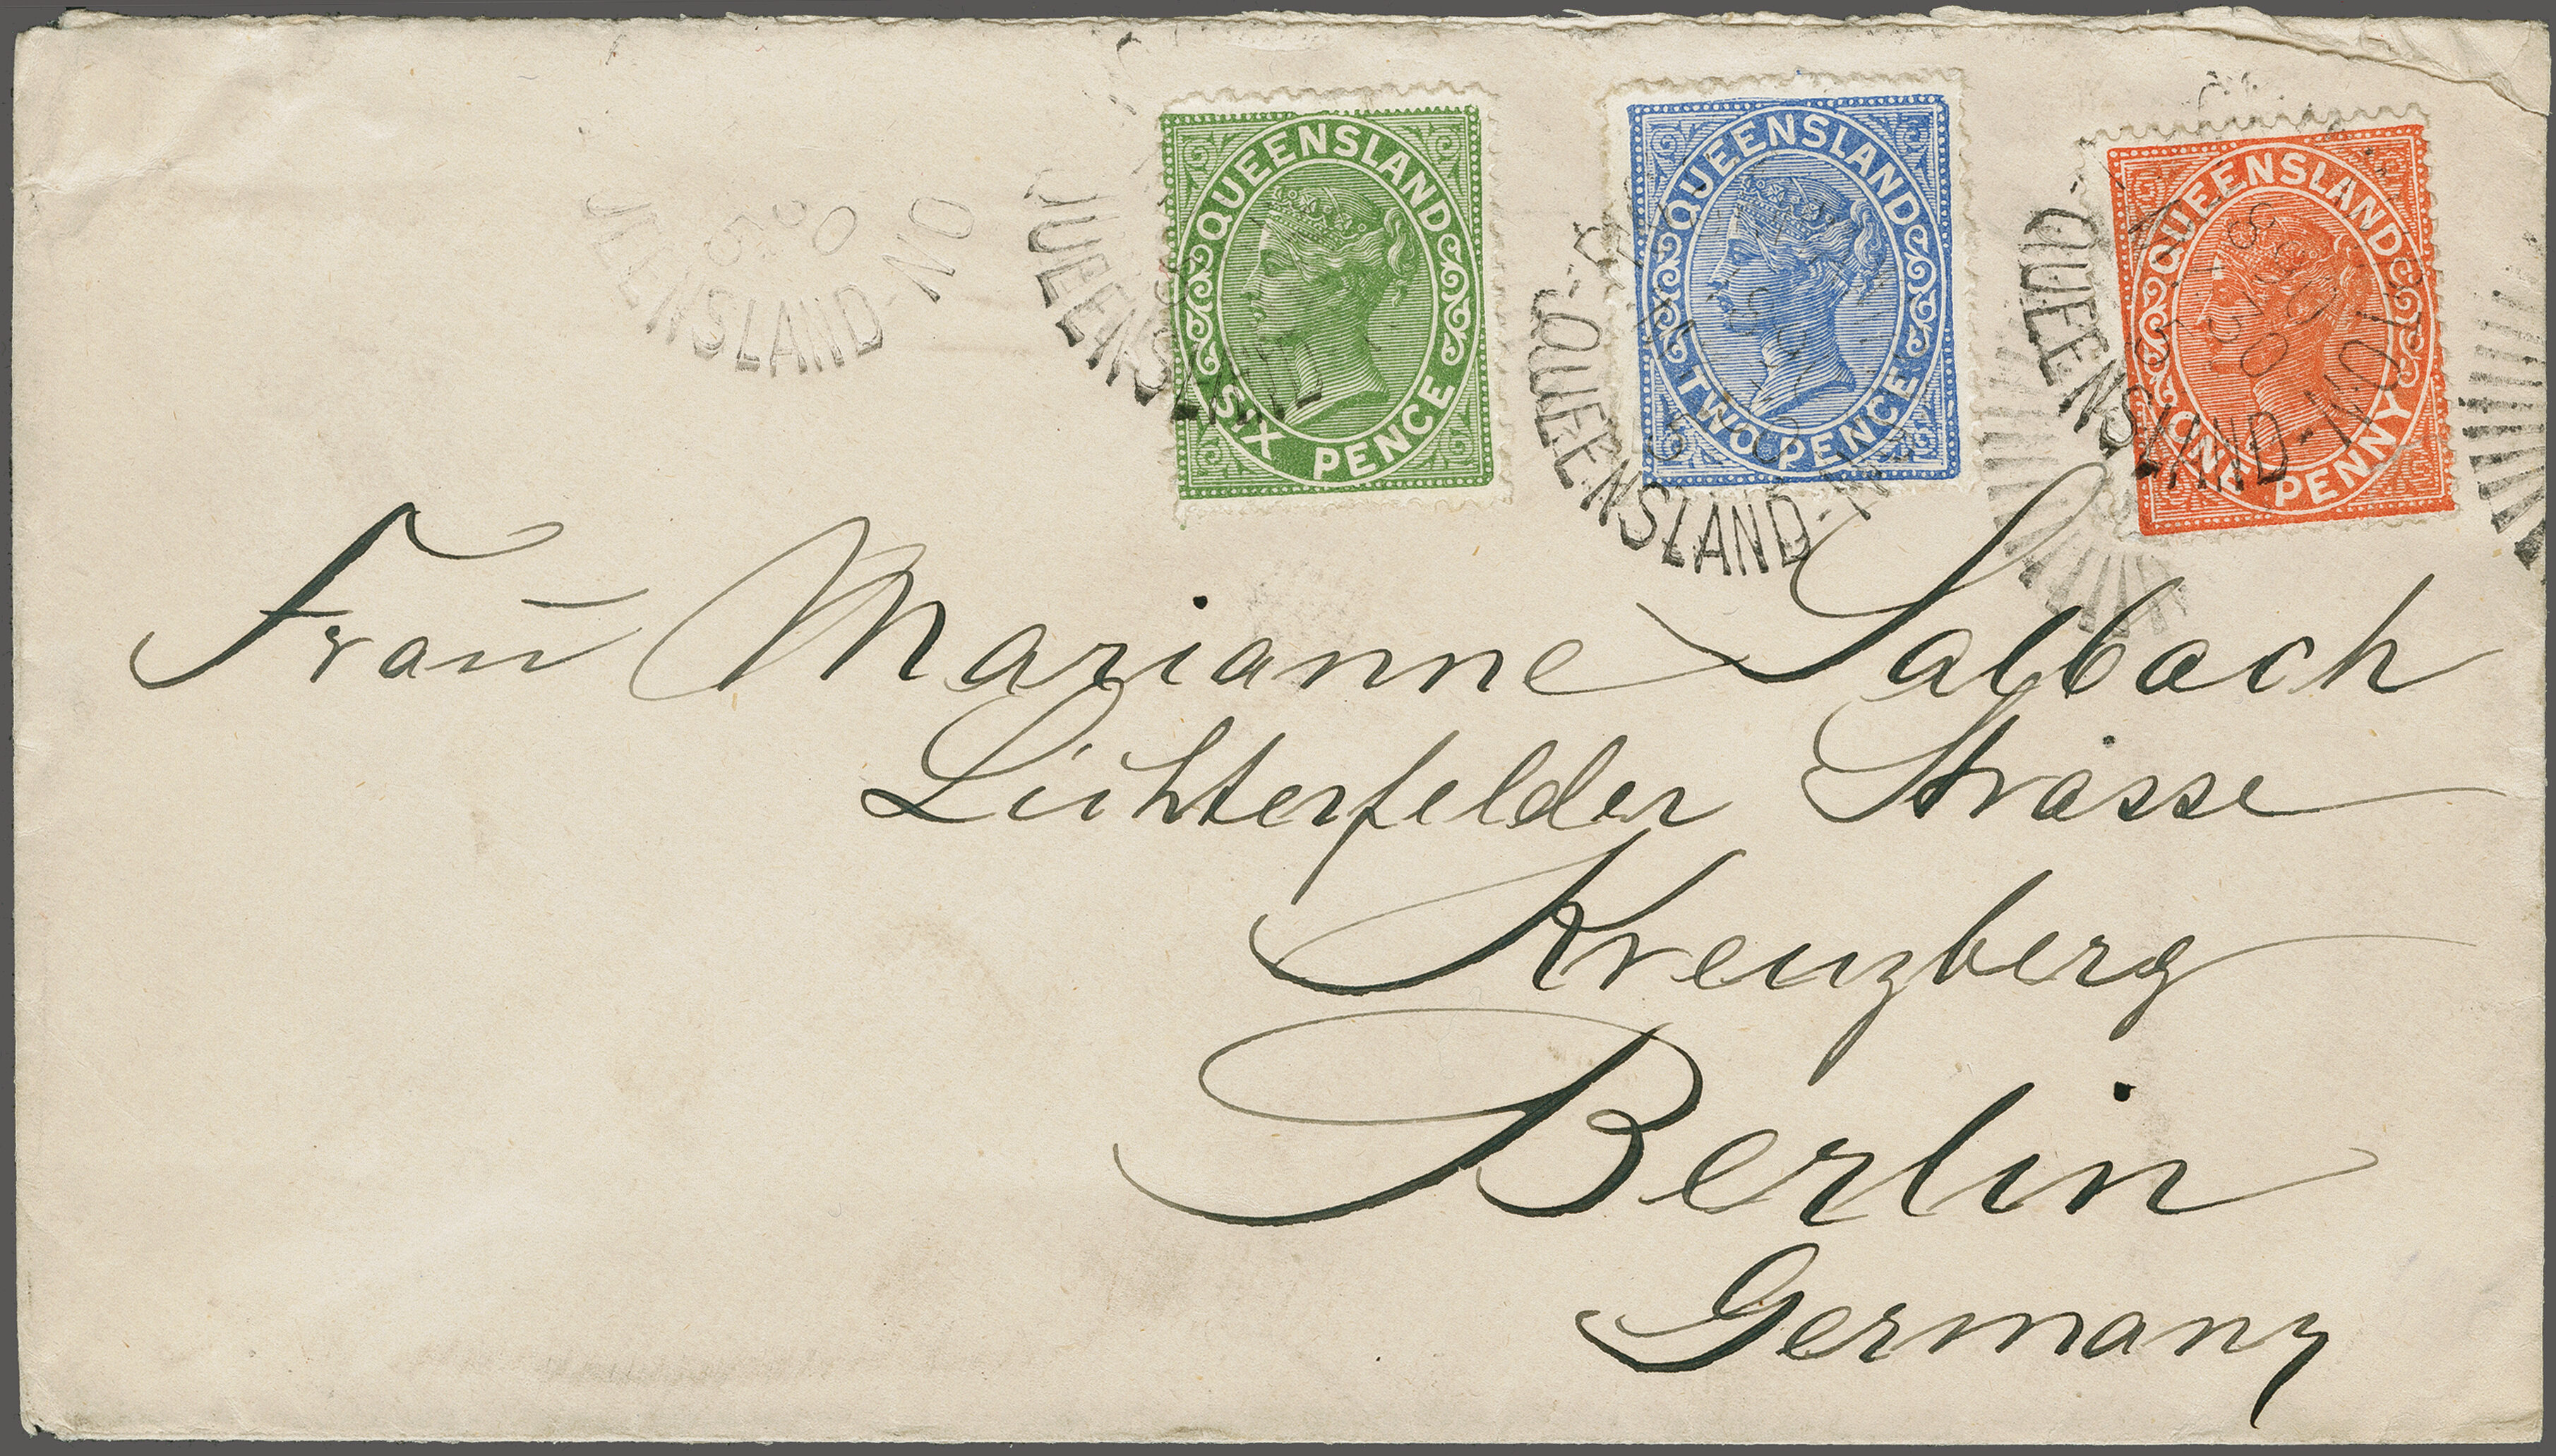 QUEENSLAND
SIX PENCE
QUEENSLAND
TWO PENCE
QUEENSLAND
ONE PENNY
UEENSLAND-NO
QUEENSLAND
-QUEENSLAND-
-QUEENSLAND-
Fraū Marianne Salbach
Lichterfelder Strasse
Kreuzberg
Berlin
Germany